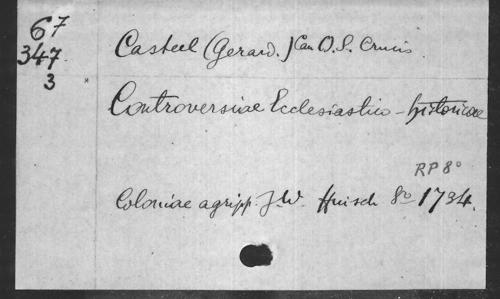 67
347
3
Casteel (Gerard.) Can O.S. Crucis
Controversiae Ecclesiastico-historicae
RP 8°
Coloniae agripp. J.W. Huisch 8° 1734.